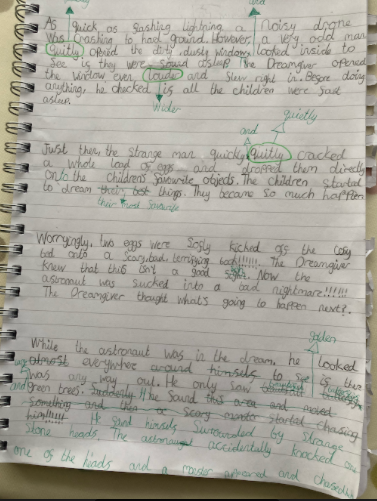 and
As quick as gashing lightning a noisy drone
was crashing to had gound. However, a very old man
quitly opend the dirty, dusty window, looked inside to
see is they were sound asleep. The Dreamgiver opened
the window even louder and slew right in. Before doing
anything, he checked is all the children were sast
asleep.
wider
quietly
and
Just then the strange man quickly quitly cracked
a whole load of eggs and dropped them directly
onto the children's savourite objects. The children started
to dream their best things. They became so much happier
their most savourite
Worryingly, two eggs were sosly kicked off the cosy
bed onto a scary, bad, terrifying book!!!!!! The Dreamgiver
knew that this isn't a good sight. Now the
astronaut was sucked into a bad nightmare!!!!!!
The Dreamgiver thought what's going to happen next?
golden
While the astronaut was in the dream, he looked
almost everywhere around himself to see is there
was any way out. He only saw
and green trees. Suddenly He sound this area and
something and then a scary monster started chasing
him!!!!!! He sound himself surrounded by strange
stone heads. The astronaut accidentally knocked
one of the heads and a monster appeared and chased